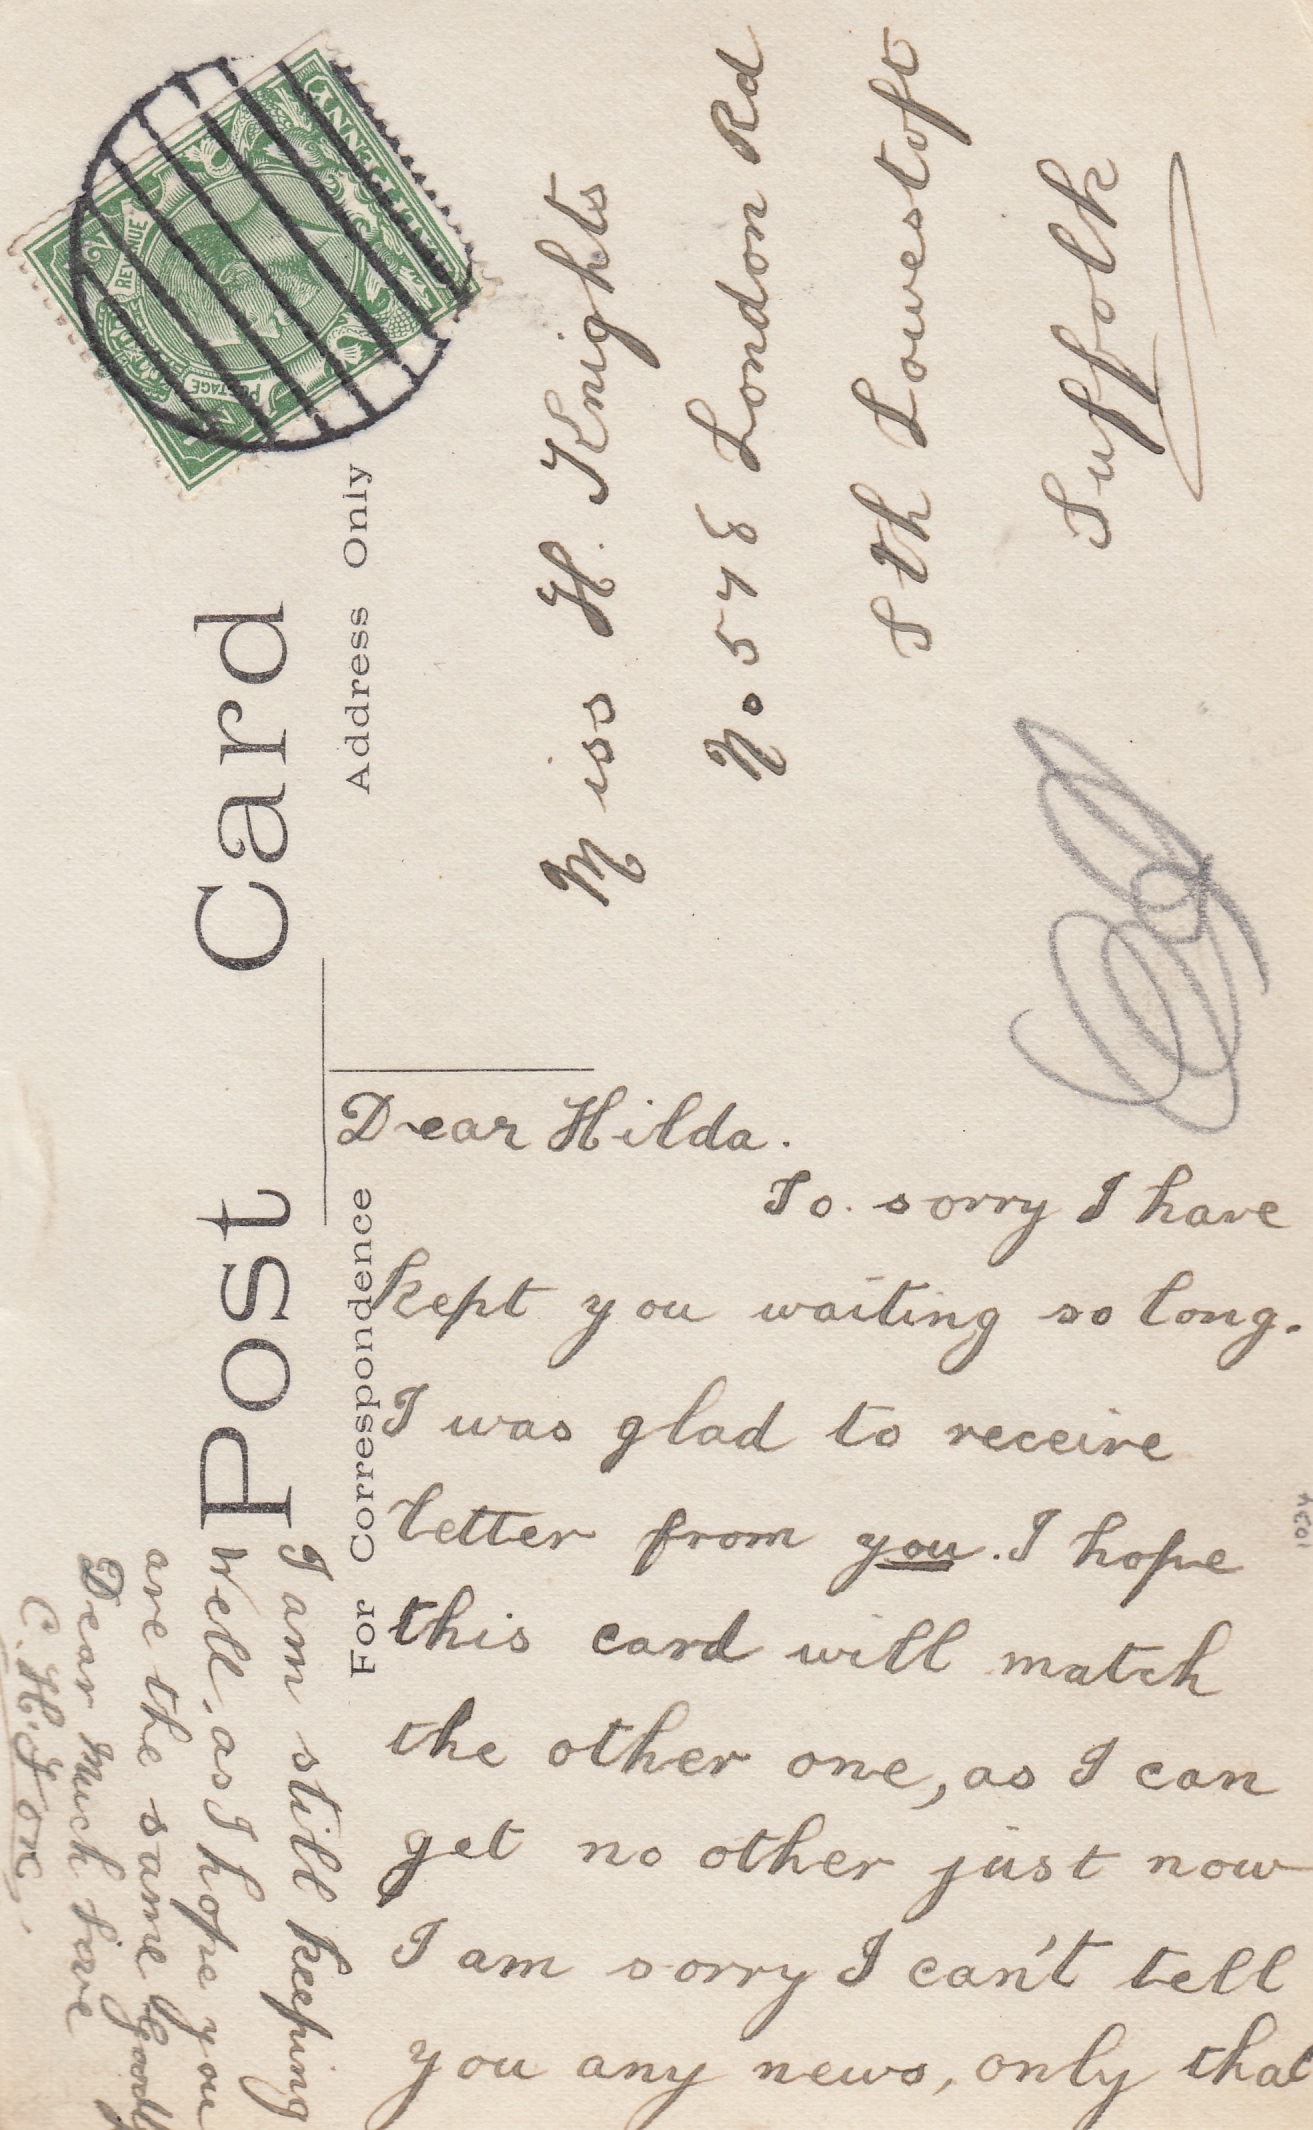 Post Card
For Correspondence
Address Only
HALFPENNY
POSTAGE
REVENUE
Miss H. Knights
No 578 London Rd
Sth Lowestoft
Suffolk
Dear Hilda.
So. sorry I have
kept you waiting so long.
I was glad to receive
letter from you. I hope
this card will match
the other one, as I can
get no other just now
I am sorry I can't tell
you any news, only that
I am still keeping
well. as I hope you
are the same
Dear Much love
C. H.